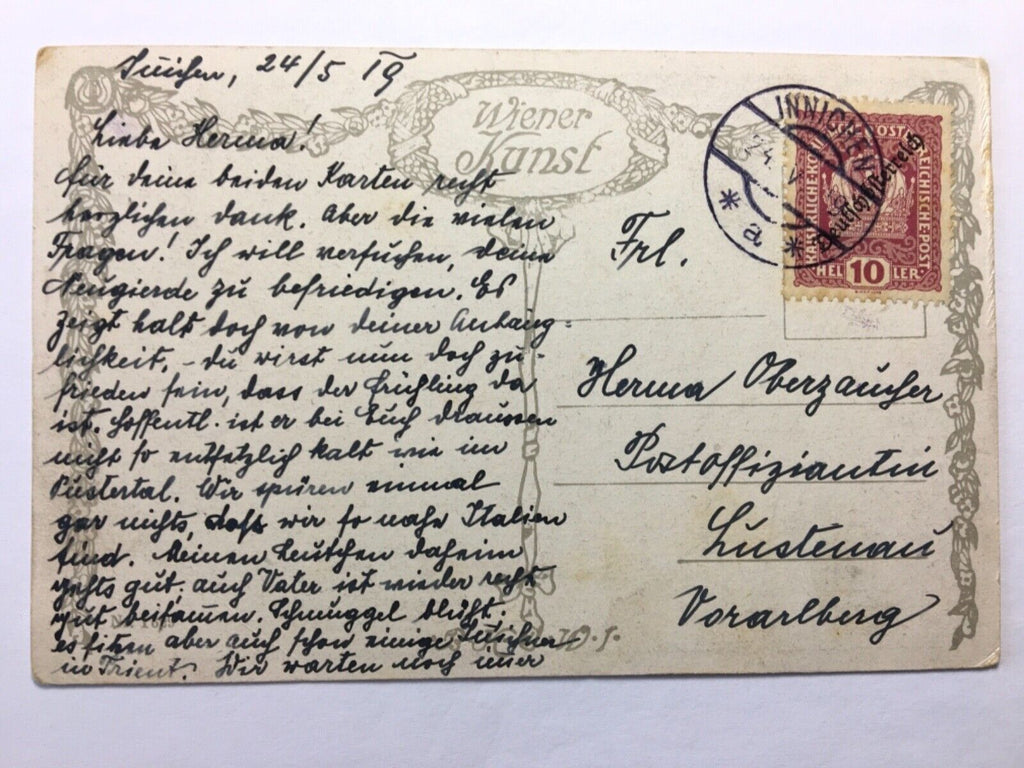 Innichen, 24/5 19
Wiener
Kunst
Liebe Herma!
für deine beiden Karten recht
herzlichen dank. Aber die vielen
Fragen! Ich will versuchen, deine
Neugierde zu befriedigen. Es
zeigt halt doch von deiner Anhäng-
lichkeit. - du wirst nun doch zu-
frieden sein, dass der Frühling da
ist. Hoffentl. ist er bei Euch draussen
nicht so entsetzlich kalt wie im
Pustertal. Wir spüren einmal
gar nichts, dass wir so nahe Italien
sind. Meinen Leutchen daheim
gehts gut. auch Vater ist wieder recht
gut beisammen. Schmuggel blüht.
es sitzen aber auch schon einige
in Trient. Wir warten noch imer
Frl.
Herma Oberzaucher
Postoffiziantin
Lustenau
Vorarlberg
INNICHEN
24. V.
* a *
KAISERLICHE KÖNIGLICHE ÖSTERREICHISCHE POST
Deutschösterreich
HELLER
10